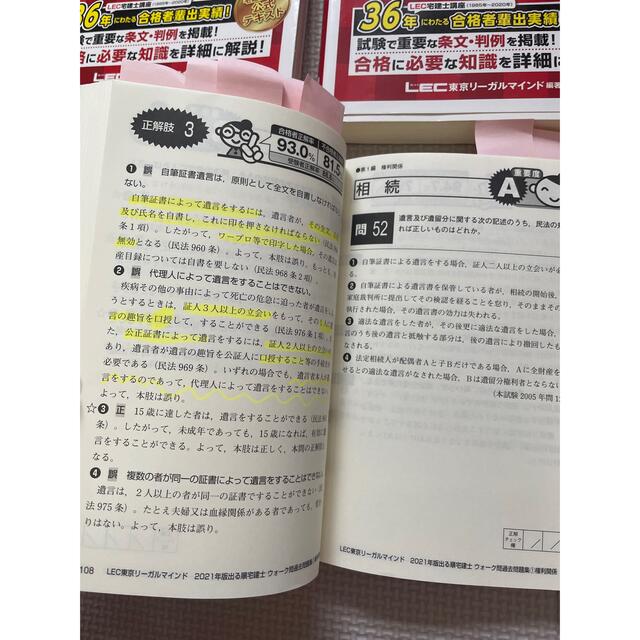 LEC宅建士講座(1985年~2020年)
36年にわたる合格者輩出実績!
試験で重要な条文・判例を掲載!
合格に必要な知識を詳細に解説!
LEC
LEC宅建士講座(1985年~2020年)
36年にわたる合格者輩出実績!
試験で重要な条文・判例を掲載!
合格に必要な知識を詳細に
LEC東京リーガルマインド 編著
正解肢 3
合格者正解率
93.0%
81.5
受験者正解率
❶ 誤 自筆証書遺言は、原則として全文を自書しなければ
ない。
自筆証書によって遺言をするには、遺言者が、その全文、
及び氏名を自書し、これに印を押さなければならない
条1項)。したがって、ワープロ等で印字した場合、その遺
無効となる(民法960条)。よって、本肢は誤り。もっとも、
産目録については自書を要しない(民法968条2項)。
❷ 誤 代理人によって遺言をすることはできない。
疾病その他の事由によって死亡の危急に迫った者が遺言をし
うとするときは、証人3人以上の立会いをもって、その1人に
言の趣旨を口授して、することができる(民法976条1項)。
た、公正証書によって遺言をするには、証人2人以上の立会い
あり、遺言者が遺言の趣旨を公証人に口授すること等の手続
必要である(民法969条)。いずれの場合でも、遺言者本人が
言をするのであって、代理人によって遺言をすることはできない
よって、本肢は誤り。
☆❸ 正 15歳に達した者は、遺言をすることができる(民法
条)。したがって、未成年であっても、15歳になれば、有効に
言をすることができる。よって、本肢は正しく、本問の正解肢と
なる。
❹ 誤 複数の者が同一の証書によって遺言をすることはできない
遺言は、2人以上の者が同一の証書ですることができない
法975条)。たとえ夫婦又は血縁関係がある者であっても、
りはない。よって、本肢は誤り。
108 LEC東京リーガルマインド 2021年版出る順宅建士 ウォーク問過去問題集
●第1編 権利関係
相続
重要度
A
問 52
遺言及び遺留分に関する次の記述のうち、民法の
れば正しいものはどれか。
❶ 自筆証書による遺言をする場合、証人二人以上の立会いが
❷ 自筆証書による遺言書を保管している者が、相続の開始後、
家庭裁判所に提出してその検認を経ることを怠り、そのままその
執行された場合、その遺言書の効力は失われる。
❸ 適法な遺言をした者が、その後更に適法な遺言をした場合、
言のうち後の遺言と抵触する部分は、後の遺言により撤回した
る。
❹ 法定相続人が配偶者Aと子Bだけである場合、Aに全財産を
せるとの適法な遺言がなされた場合、Bは遺留分権利者とならない
(本試験 2005年問1
正解
チェック
欄
LEC東京リーガルマインド 2021年版出る順宅建士 ウォーク問過去問題集①権利関係